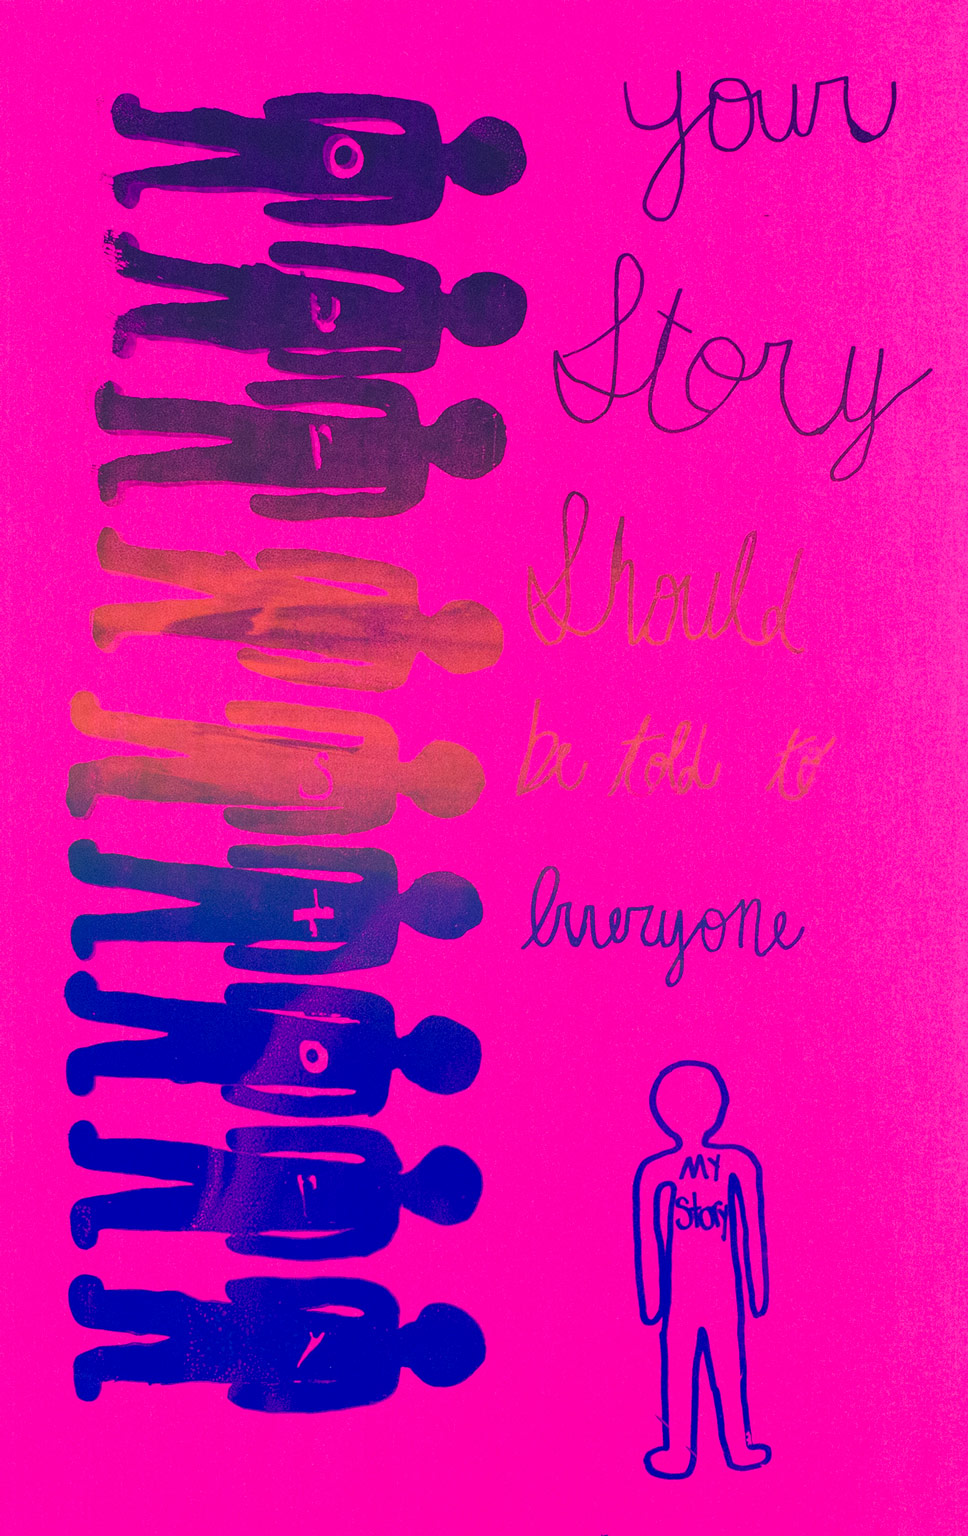 Our Story
your
Story
Should
be told to
everyone
MY
Story